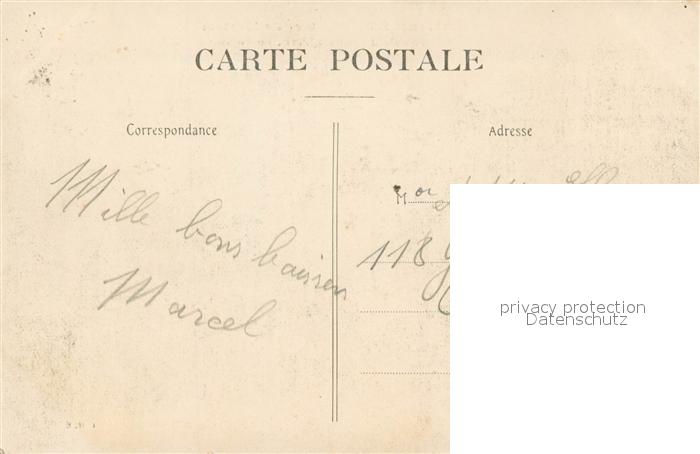 CARTE POSTALE
Correspondance
Adresse
Mille bons baisers
Marcel
M
118
privacy protection
Datenschutz